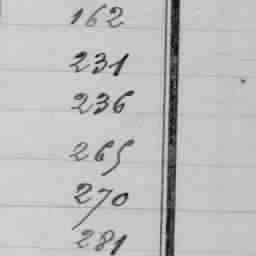 162
231
236
265
270
281